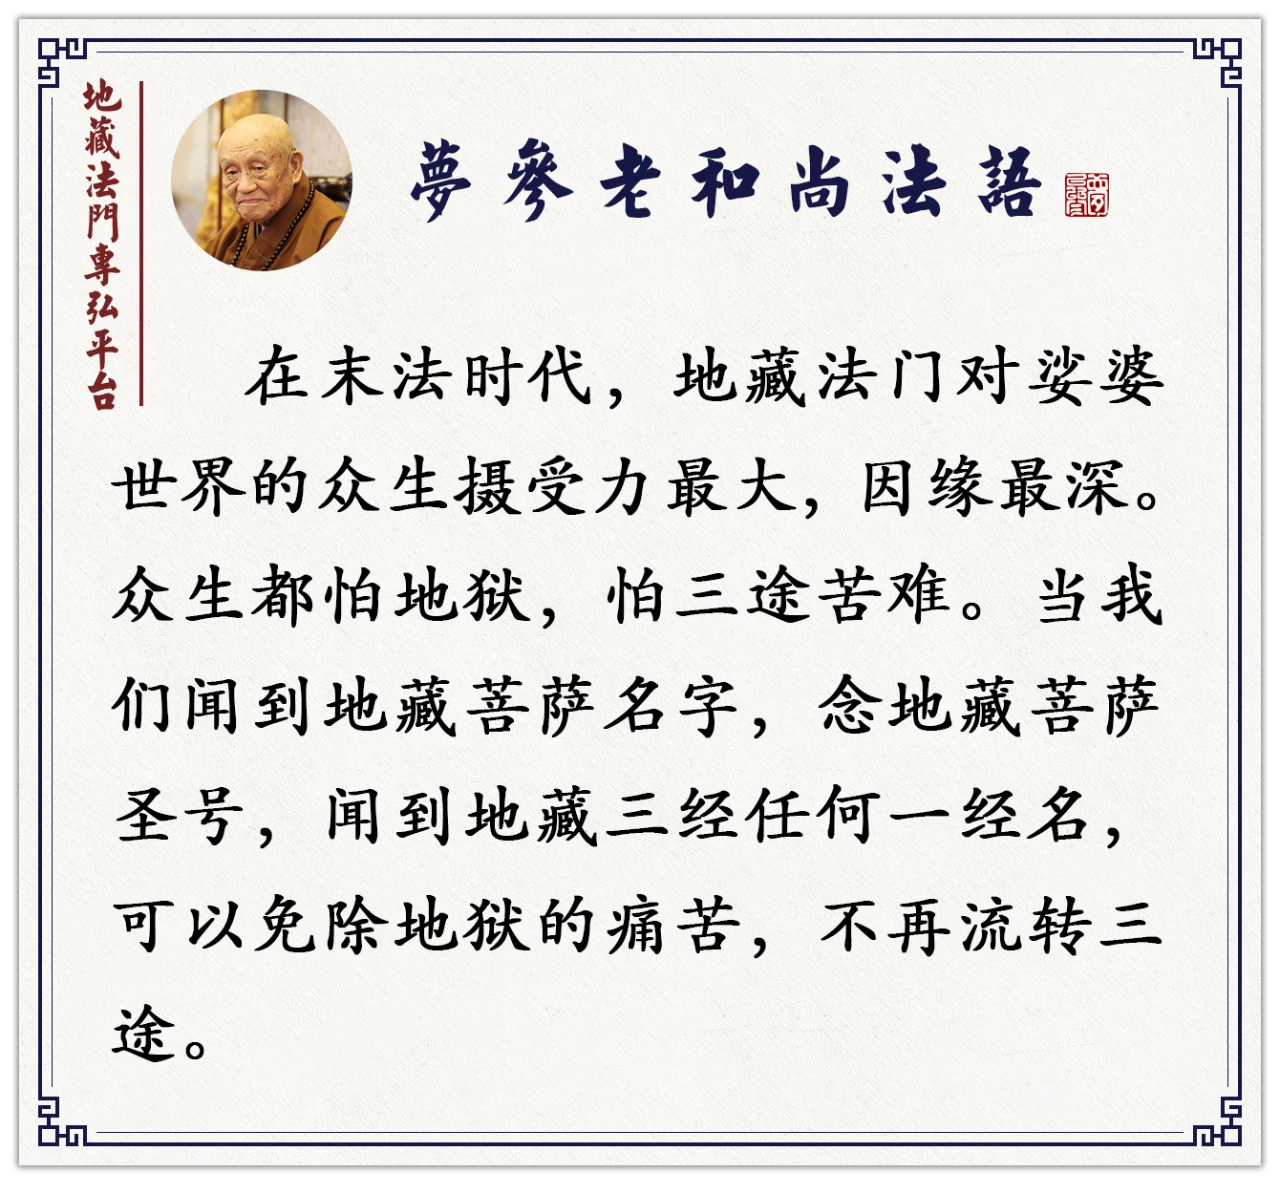 地藏法門專弘平台
夢參老和尚法語
在末法时代，地藏法门对娑婆
世界的众生摄受力最大，因缘最深。
众生都怕地狱，怕三途苦难。当我
们闻到地藏菩萨名字，念地藏菩萨
圣号，闻到地藏三经任何一经名，
可以免除地狱的痛苦，不再流转三
途。